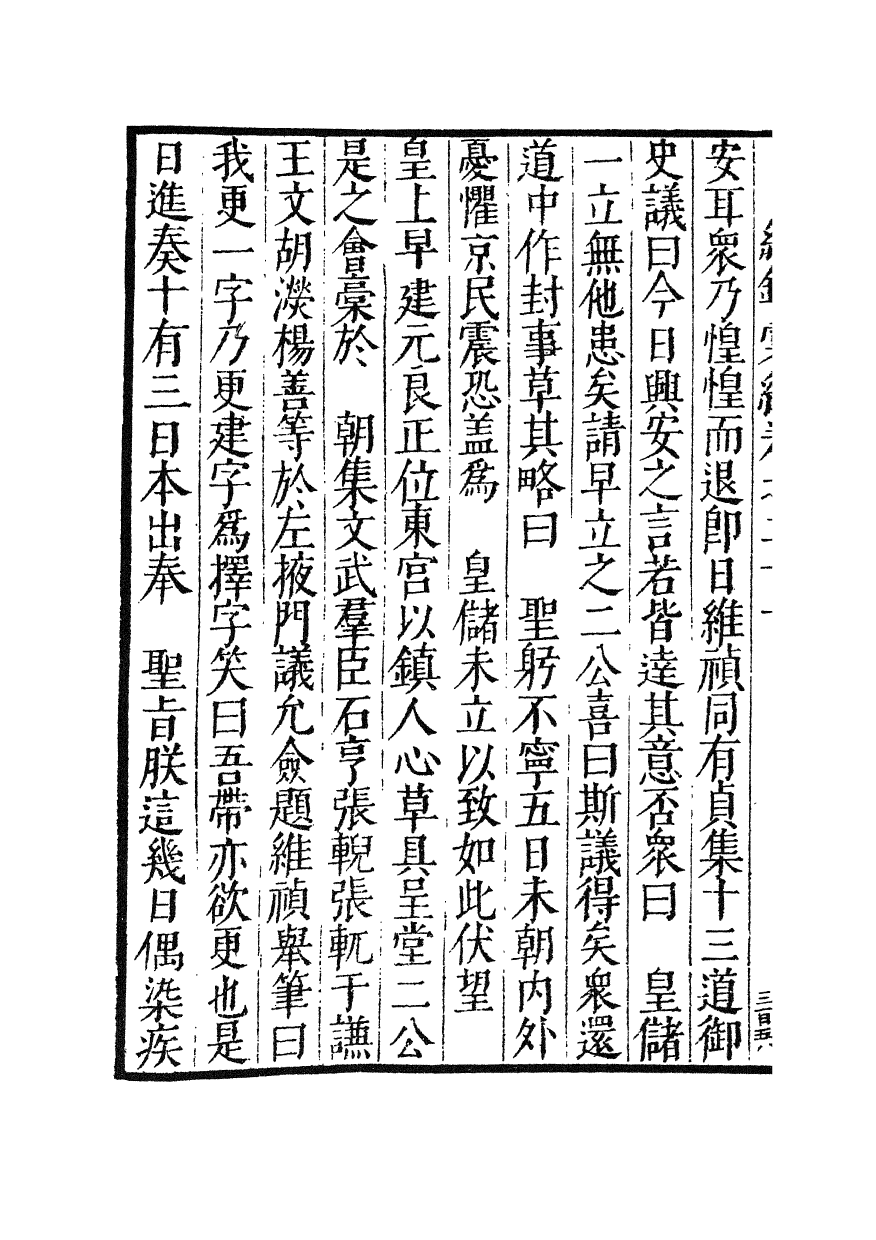 安耳衆乃惶惶而退卽日維禎同有貞集十三道御
史議曰今日興安之言若皆達其意否衆曰　皇儲
一立無他患矣請早立之二公喜曰斯議得矣衆還
道中作封事草其略曰　聖躬不寧五日未朝内外
憂懼京民震恐盖爲　皇儲未立以致如此伏望
皇上早建元良正位東宮以鎮人心草具呈堂二公
是之會稾於　朝集文武羣臣石亨張輗張軏于謙
王文胡濙楊善等於左掖門議允僉題維禎舉筆曰
我更一字乃更建字爲擇字笑曰吾帶亦欲更也是
日進奏十有三日本出奉　聖旨朕這幾日偶染疾